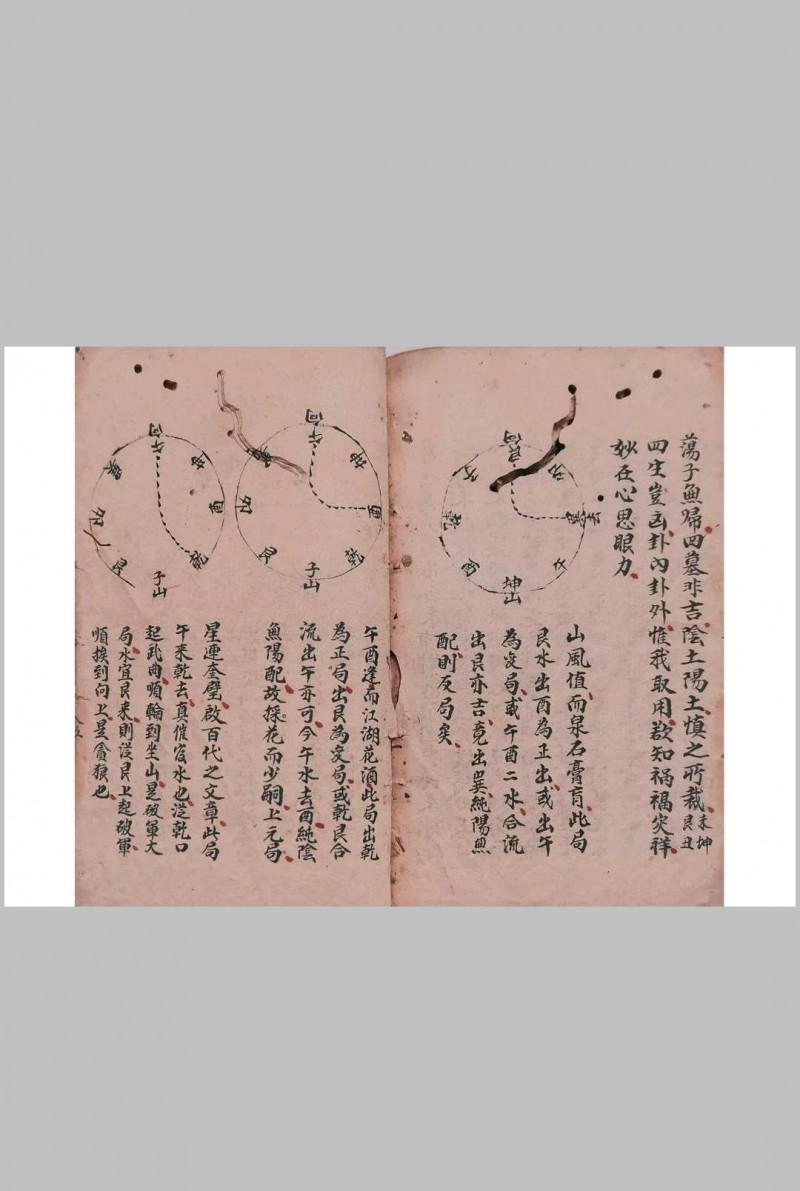 蕩子魚歸四墓非吉陰土陽土慎之所裁未坤艮丑
四生豈
卦內卦外惟我取用欲知禍福灾祥
妙在心思眼力
艮向
坤山
山風值而泉石膏肓此局
艮水出酉為正出或出午
為变局或午酉二水合流
出艮亦吉竟出巽純陽無
配則反局矣
午向
坤
酉
乾
子山
艮
卯
巽
午酉逢而江湖花酒此局出乾
為正局出艮為变局或乾艮合
流出午亦可今午水去酉純陰
無陽配故採花而少嗣上元局
午向
坤
酉
乾
子山
艮
卯
巽
星連奎璧啟百代之文章此局
午來乾去真催官水也從乾口
起武曲順輪到坐山是破軍大
局水宜艮來則從艮上起破軍
順挨到向上是貪狼也